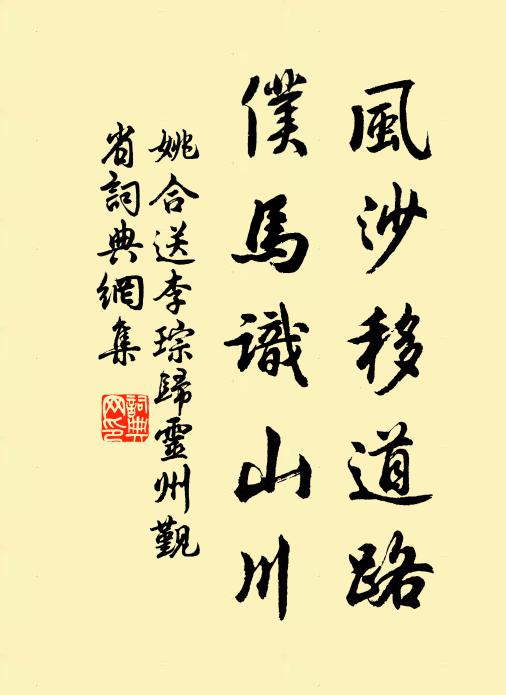 風沙移道路
僕馬識山川
姚合送李琮歸靈州覲
省詞典網集
詞典網印